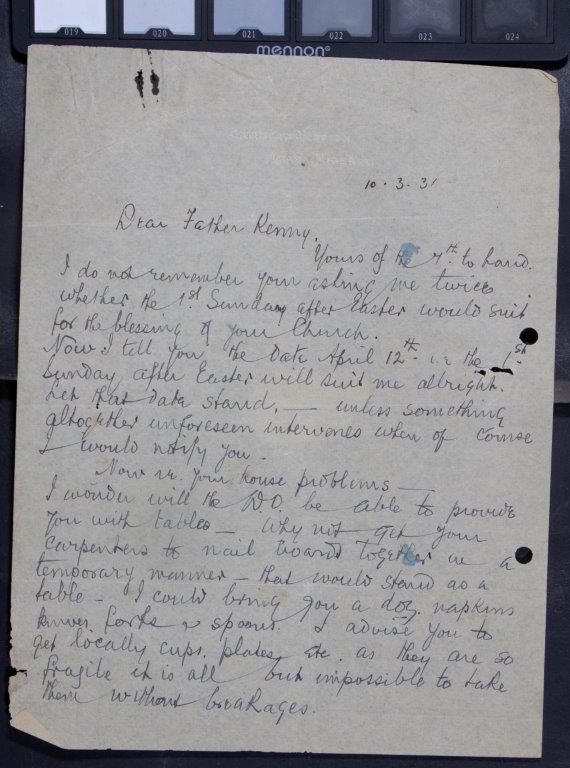 019 020 021 022 023 024
mennon®
10.3.31
Dear Father Kenny,
Yours of the 7th. to hand.
I do not remember your asking me twice
whether the 1st Sunday after Easter would suit
for the blessing of your Church.
Now I tell you the date April 12th. i.e the 1st
Sunday after Easter will suit me allright.
Let that date stand, — unless something
altogether unforeseen intervenes when of course
I would notify you.
Now re. your house problems —
I wonder will the D.O. be able to provide
you with tables — Why not get your
carpenters to nail board together in a
temporary manner — that would stand as a
table — I could bring you a doz. napkins
knives forks & spoons. I advise you to
get locally cups, plates, etc. as they are so
fragile it is all but impossible to take
them without breakages.